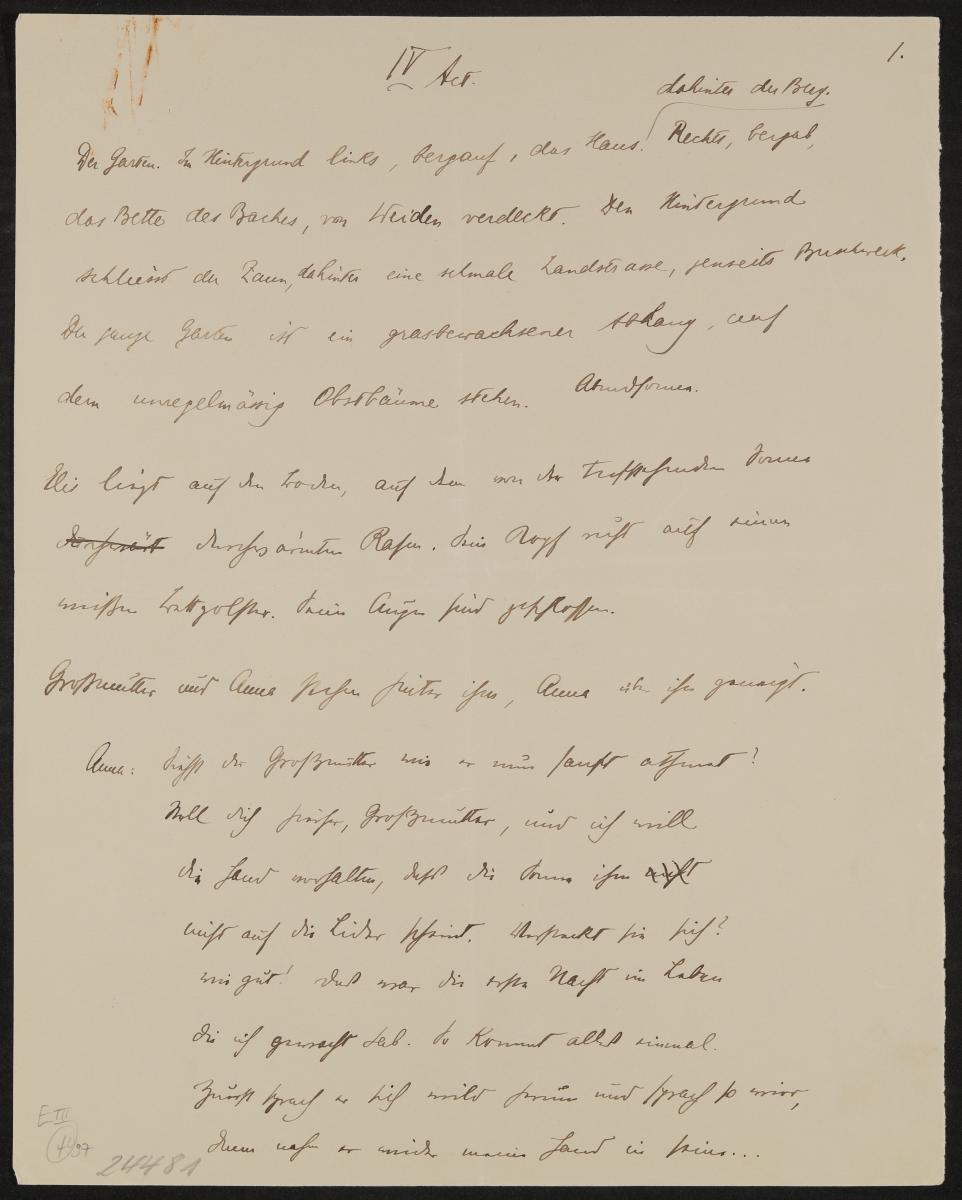 1.
IV Act.
dahinter der Berg.
Der Garten. Im Hintergrund links, bergauf, das Haus. Rechts, bergab,
das Bette des Baches, von Weiden verdeckt. Den Hintergrund
schliesst der Zaun, dahinter eine schmale Landstrasse, jenseits Buschwerk.
Der ganze Garten ist ein grasbewachsener Abhang, auf
dem unregelmässig Obstbäume stehen. Abendsonne.
Elis liegt auf dem Boden, auf dem von der tiefstehenden Sonne
durchwärmten Rasen. Sein Kopf ruht auf einem
weißen Bettpolster. Seine Augen sind geschlossen.
Großmutter und Anna stehen hinter ihm, Anna über ihn geneigt.
Anna: Siehst du Großmutter wie er nun sanft athmet?
Stell dich hieher, Großmutter, und ich will
die Hand vorhalten, daß die Sonne ihm nicht
nicht auf die Lider scheint. Versteckt sie sich?
wie gut! Das war die erste Nacht im Leben
die ich gewacht hab. So kommt alles einmal.
Zuerst sprach er sich wild herum und sprach so wirr,
dann nahm er wieder meine Hand in seine...
E III
97
24481